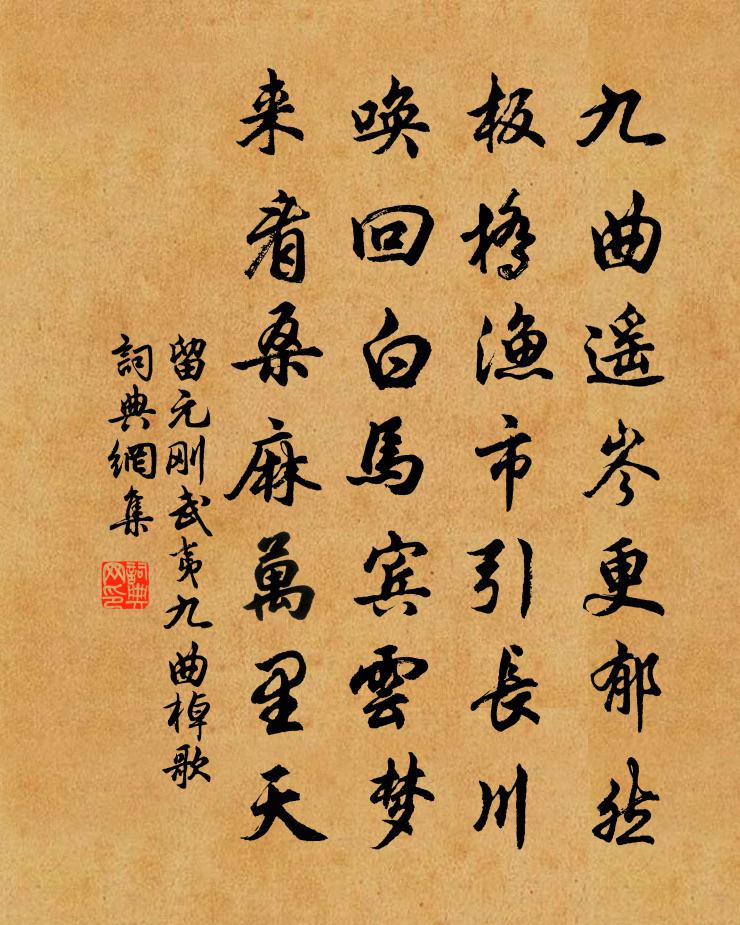 九曲遥岑更郁然
板橋漁市引長川
唤回白馬賓雲梦
来看桑麻萬里天
留元刚武夷九曲棹歌
詞典網集
詞典网印